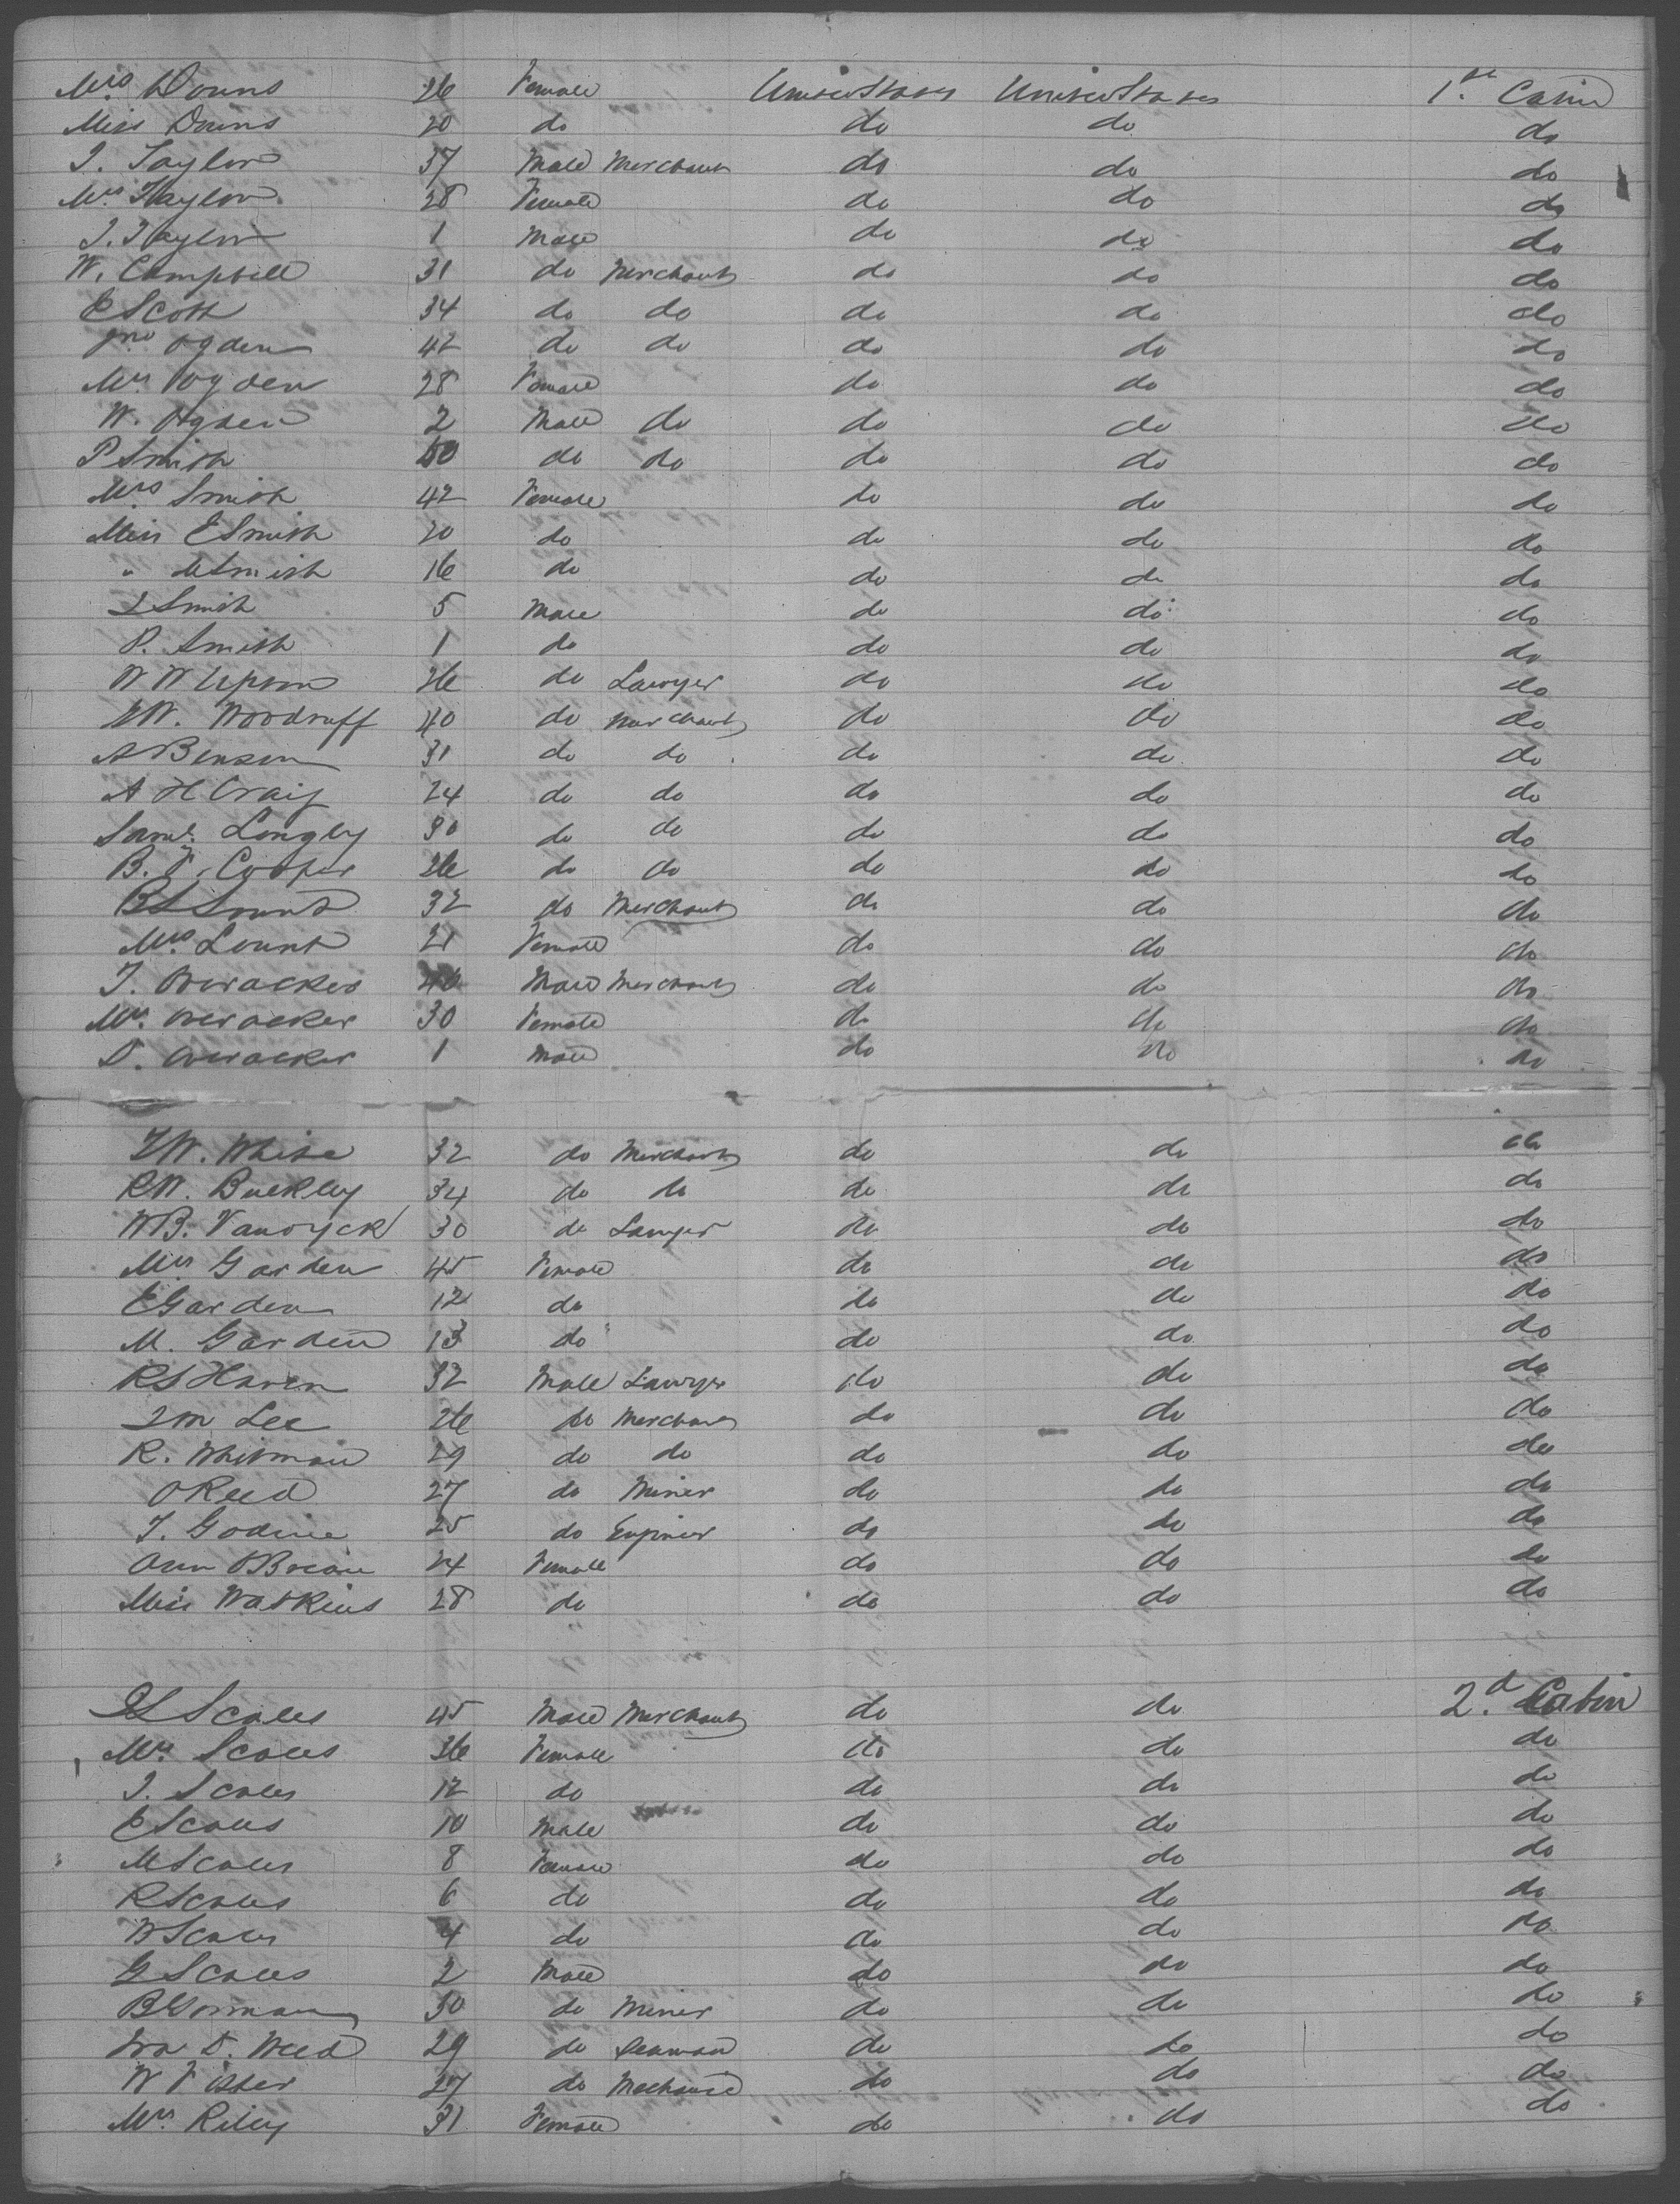 Mrs. Downs 26 Female United States United States 1st Cabin
Miss Downs 20 do do do do
J. Taylor 37 Male Merchant do do do
Mrs. Taylor 28 Female do do do
J. Taylor 1 Male do do do
W. Campbell 31 do Merchant do do do
E Scott 34 do do do do do
Jno Ogden 42 do do do do do
Mrs Ogden 28 Female do do do
W. Ogden 2 Male do do do do
P Smith 50 do do do do do
Mrs Smith 42 Female do do do
Miss E Smith 20 do do do do
" M Smith 16 do do do do
J Smith 5 Male do do do
P. Smith 1 do do do do
W W Upson 26 do Lawyer do do do
W. Woodruff 40 do Merchant do do do
A Benson 31 do do do do do
A H Craig 24 do do do do do
Saml. Longley 30 do do do do do
B. F. Cooper 26 do do do do do
B S Lount 32 do Merchant do do do
Mrs. Lount 21 Female do do do
J. Overacker 40 Male Merchant do do do
Mrs. Overacker 30 Female do do do
D. Overacker 1 Male do do do
W. White 32 do Merchant do do do
R W. Buckley 34 do do do do do
W B. Vanwyck 30 do Lawyer do do do
Mrs Garden 45 Female do do do
E Garden 12 do do do do
M. Garden 13 do do do do
R S Haven 32 Male Lawyer do do do
J M Lee 26 do Merchant do do do
R. Whitman 29 do do do do do
O Reed 27 do Miner do do do
J. Godine 25 do Enginer do do do
Ann O Brian 24 Female do do do
Miss Watkins 28 do do do do
Scales 45 Male Merchant do do 2d. Cabin
Mrs Scales 36 Female do do do
J. Scales 12 do do do do
E Scales 10 Male do do do
M Scales 8 Female do do do
R Scales 6 do do do do
W Scales 4 do do do do
G Scales 2 Male do do do
B Gorman 30 do Miner do do do
Ira D. Weed 29 do Seaman do do do
W Fisher 27 do Mechanic do do do
Mrs Riley 31 Female do do do